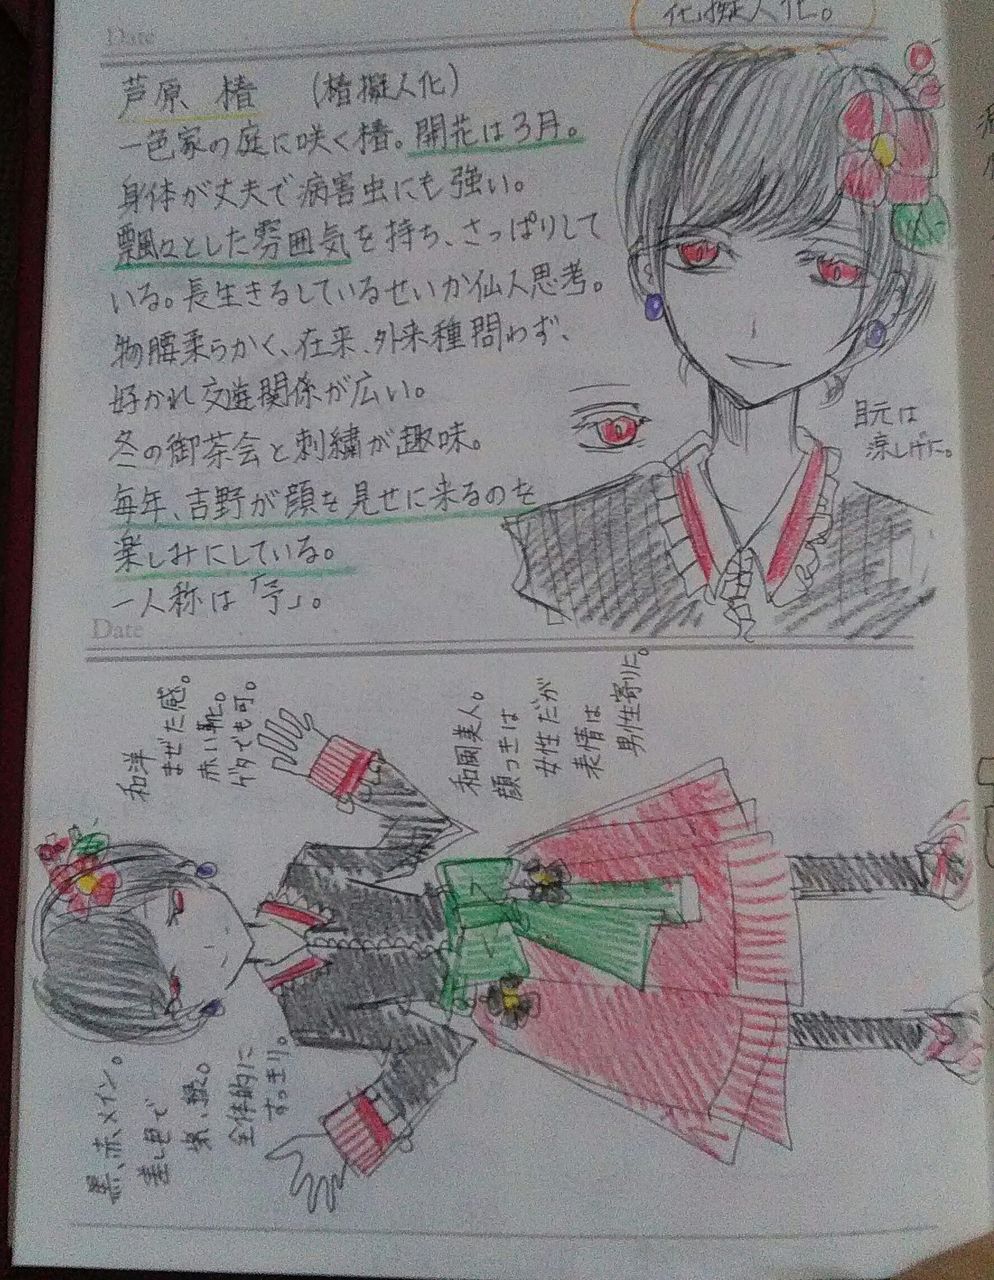 化擬人化。
Date
芦原 椿 (椿擬人化)
一色家の庭に咲く椿。開花は3月。
身体が丈夫で病害虫にも強い。
飄々とした雰囲気を持ち、さっぱりして
いる。長生きるしているせいか仙人思考。
物腰柔らかく、在来、外来種問わず、
好かれ交遊関係が広い。
冬の御茶会と刺繍が趣味。
毎年、吉野が顔を見せに来るのを
楽しみにしている。
一人称は「予」。
目元は
涼しげに。
Date
和洋
まぜた感。
赤い靴。
ゲタでも可。
和風美人。
顔つきは
女性だが
表情は
男性寄りに。
黒、赤メイン。
差し色で
紫、緑。
全体的に
すっきり。